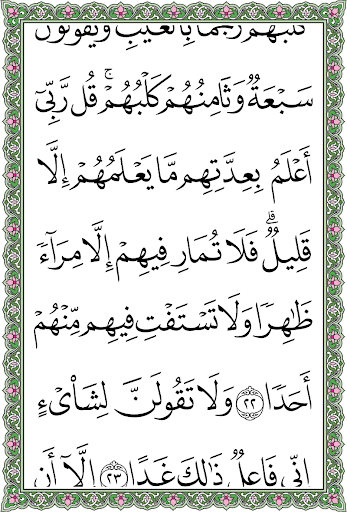 كَلْبُهُمْ رَجْمًۢا بِٱلْغَيْبِ وَيَقُولُونَ
سَبْعَةٌ وَثَامِنُهُمْ كَلْبُهُمْ ۚ قُل رَّبِّىٓ
أَعْلَمُ بِعِدَّتِهِم مَّا يَعْلَمُهُمْ إِلَّا
قَلِيلٌ ۗ فَلَا تُمَارِ فِيهِمْ إِلَّا مِرَآءً
ظَٰهِرًا وَلَا تَسْتَفْتِ فِيهِم مِّنْهُمْ
أَحَدًا ٢٢ وَلَا تَقُولَنَّ لِشَا۟ىْءٍ
إِنِّى فَاعِلٌ ذَٰلِكَ غَدًا ٢٣ إِلَّآ أَن